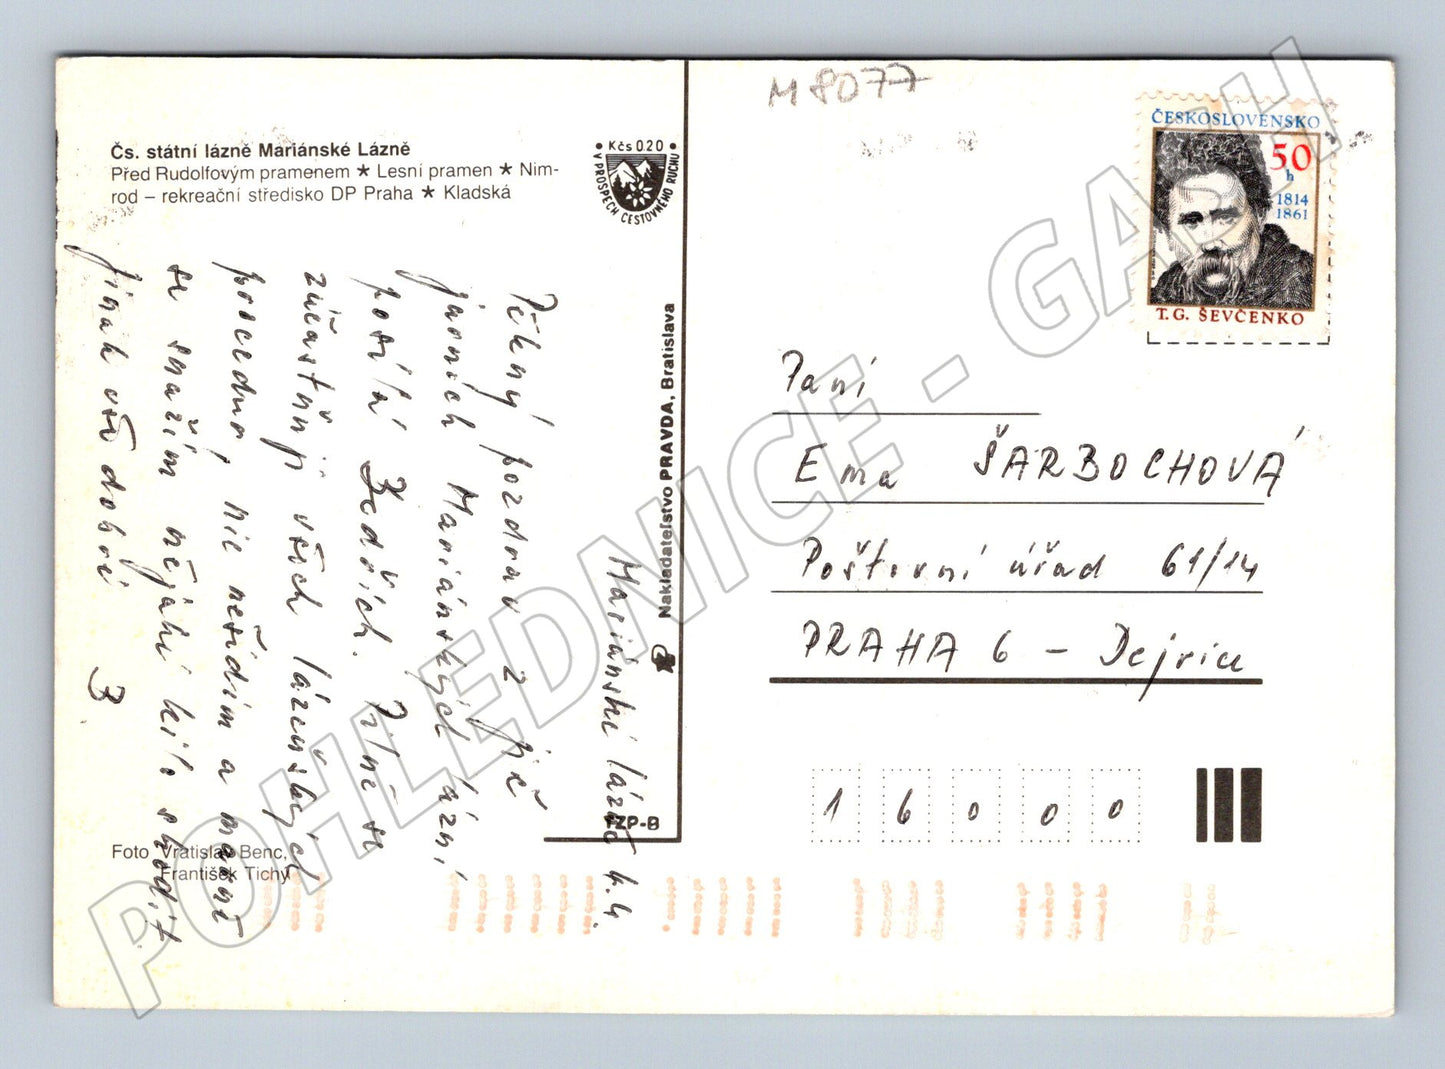 M 8077
Čs. státní lázně Mariánské Lázně
Před Rudolfovým pramenem ★ Lesní pramen ★ Nim-
rod – rekreační středisko DP Praha ★ Kladská
• Kčs 0.20 •
V PROSPECH CESTOVNÉHO RUCHU
ČESKOSLOVENSKO
50
h
1814
1861
T. G. ŠEVČENKO
Mariánské lázně 4.4.
Pěkný pozdrav z
jarních Mariánských lázní
posílá Bedřich. Pilně se
zúčastňuji všech lázeňských
procedur, nic nešidím a
se snažím nějaké kilo shodit
Jinak vše dobré
Nakladateľstvo PRAVDA, Bratislava
TZP-B
Paní
Ema ŠARBOCHOVÁ
Poštovní úřad 61/14
PRAHA 6 – Dejvice
16000
Foto Vratislav Benc,
František Tichý
POHLEDNICE - GASH